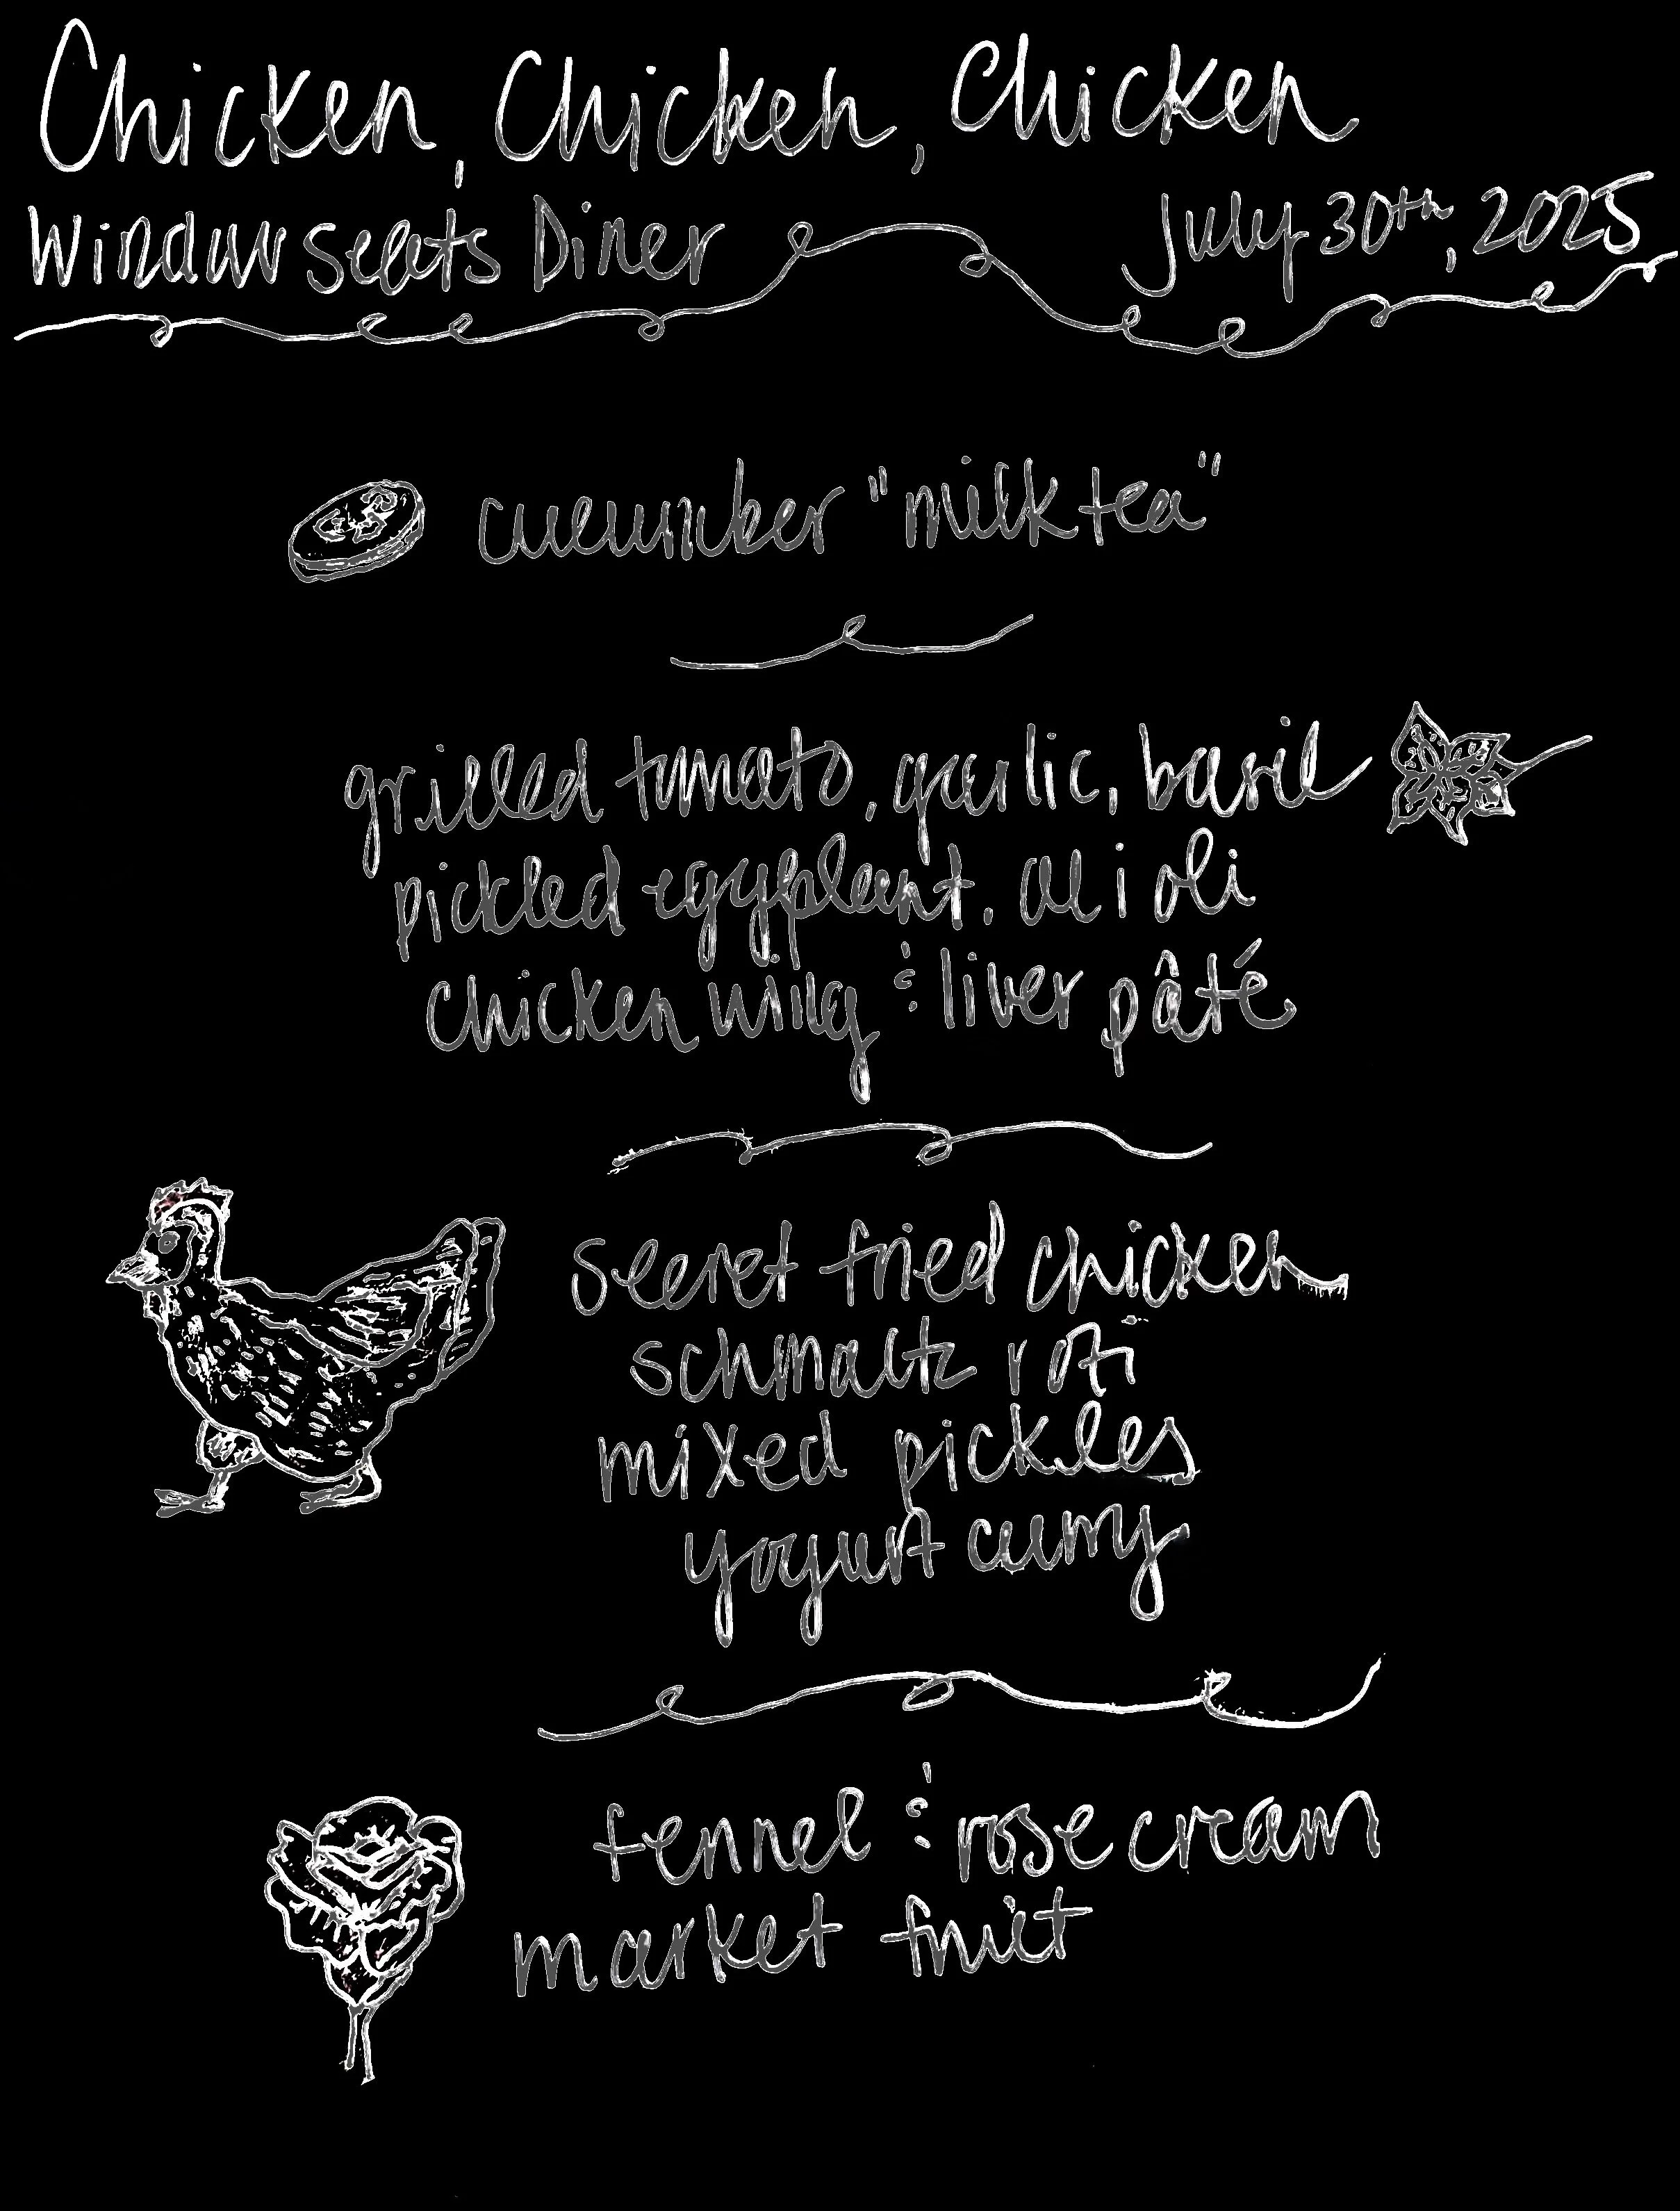 Chicken, Chicken, Chicken
Window seats Diner
July 30th, 2025
cucumber "milk tea"
grilled tomato, garlic, basil
pickled eggplant, alioli
chicken wing & liver pâté
secret fried chicken
schmaltz roti
mixed pickles
yogurt curry
fennel & rose cream
market fruit